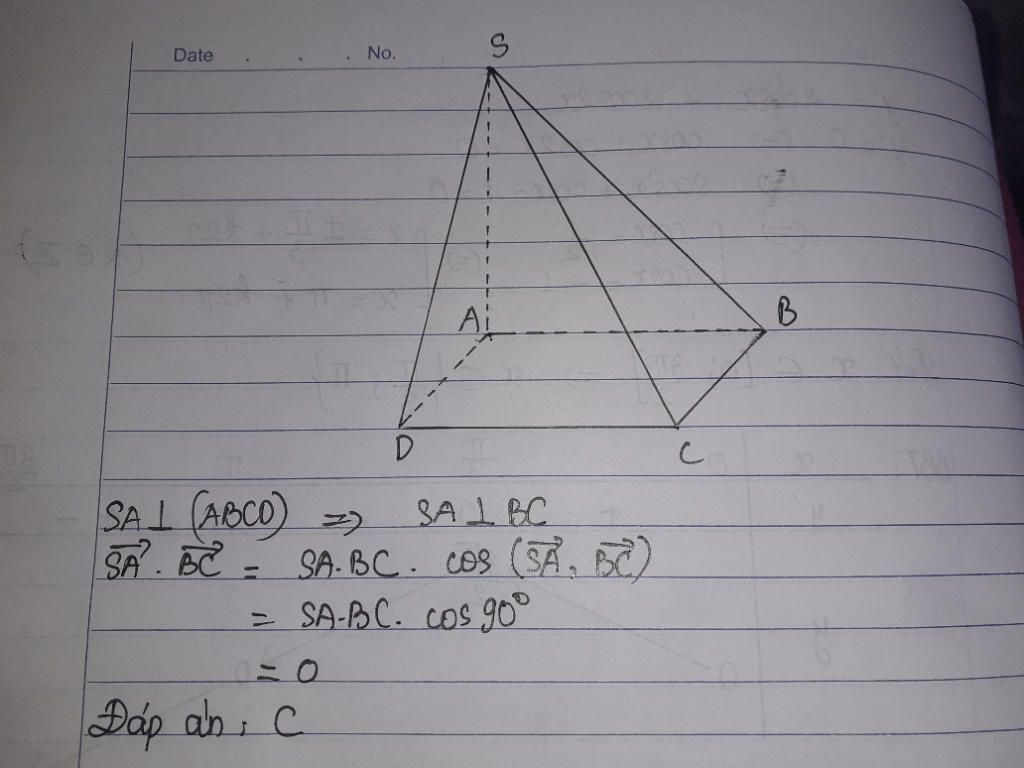 Date . . . No.
S
A
B
D
C
SA ⊥ (ABCD) => SA ⊥ BC
\overrightarrow{SA} . \overrightarrow{BC} = SA.BC. cos (\overrightarrow{SA}, \overrightarrow{BC})
= SA.BC. cos 90°
= 0
Đáp án: C